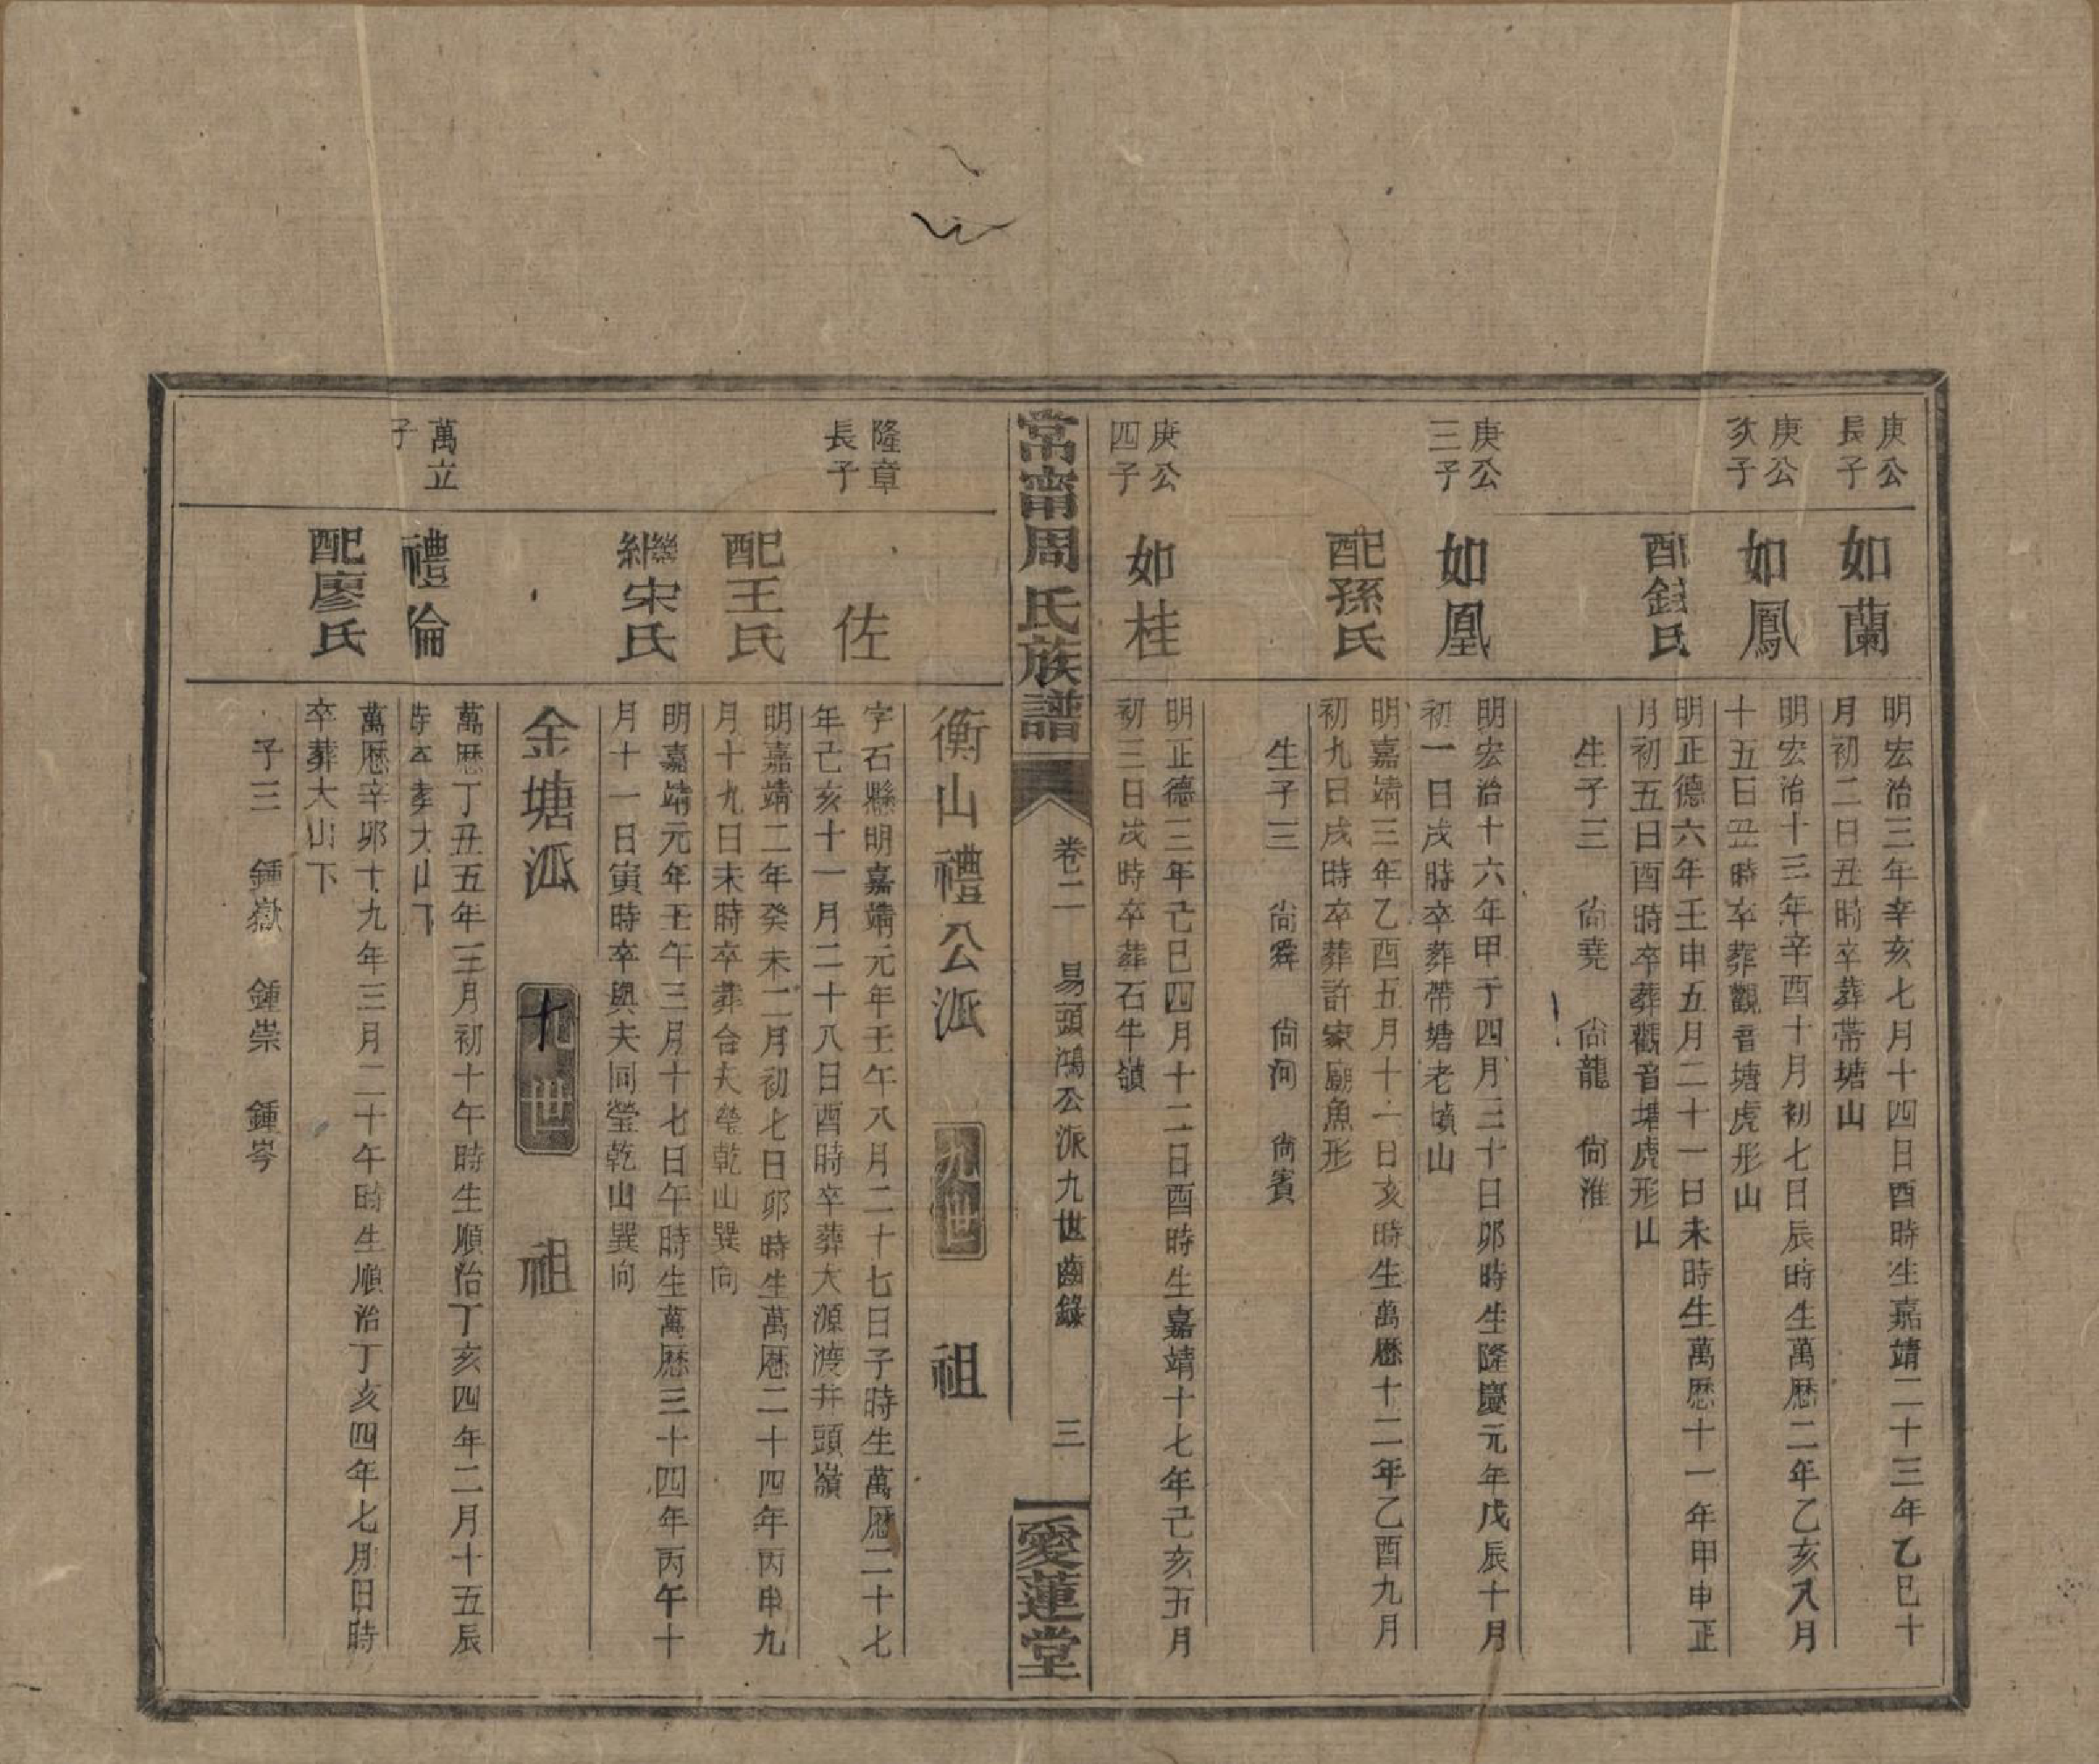 庚公
長子
如蘭
明宏治三年辛亥七月十四日酉時生嘉靖二十三年乙巳十
月初二日丑時卒葬帶塘山
庚公
次子
如鳳
明宏治十三年辛酉十月初七日辰時生萬歴二年乙亥八月
十五日丑時卒葬觀音塘虎形山
配錢氏
明正德六年壬申五月二十一日未時生萬歴十一年甲申正
月初五日酉時卒葬觀音塘虎形山
生子三 尙堯 尙龍 尙淮
庚公
三子
如凰
明宏治十六年甲子四月三十日卯時生隆慶元年戊辰十月
初一日戌時卒葬帶塘老墳山
配孫氏
明嘉靖三年乙酉五月十一日亥時生萬歴十二年乙酉九月
初九日戌時卒葬許家廟魚形
生子三 尙舜 尙河 尙賓
庚公
四子
如桂
明正德三年己巳四月十二日酉時生嘉靖十七年己亥五月
初三日戌時卒葬石牛嶺
常甯周氏族譜
卷二 易頭鴻公派九世齒錄
三
愛蓮堂
衡山禮公派 九世 祖
隆章
長子
佐
字石縣明嘉靖元年壬午八月二十七日子時生萬歴二十七
年己亥十一月二十八日酉時卒葬大源渡井頭嶺
配王氏
明嘉靖二年癸未二月初七日卯時生萬歴二十四年丙申九
月十九日未時卒葬合夫塋乾山巽向
繼配宋氏
明嘉靖元年壬午三月十七日午時生萬歴三十四年丙午十
月十一日寅時卒與夫同塋乾山巽向
金塘派 十世 祖
萬立
子
禮倫
萬歴丁丑五年三月初十午時生順治丁亥四年二月十五辰
時卒葬大山下
配廖氏
萬歴辛卯十九年三月二十午時生順治丁亥四年七月日時
卒葬大山下
子三 鍾嶽 鍾崇 鍾岑